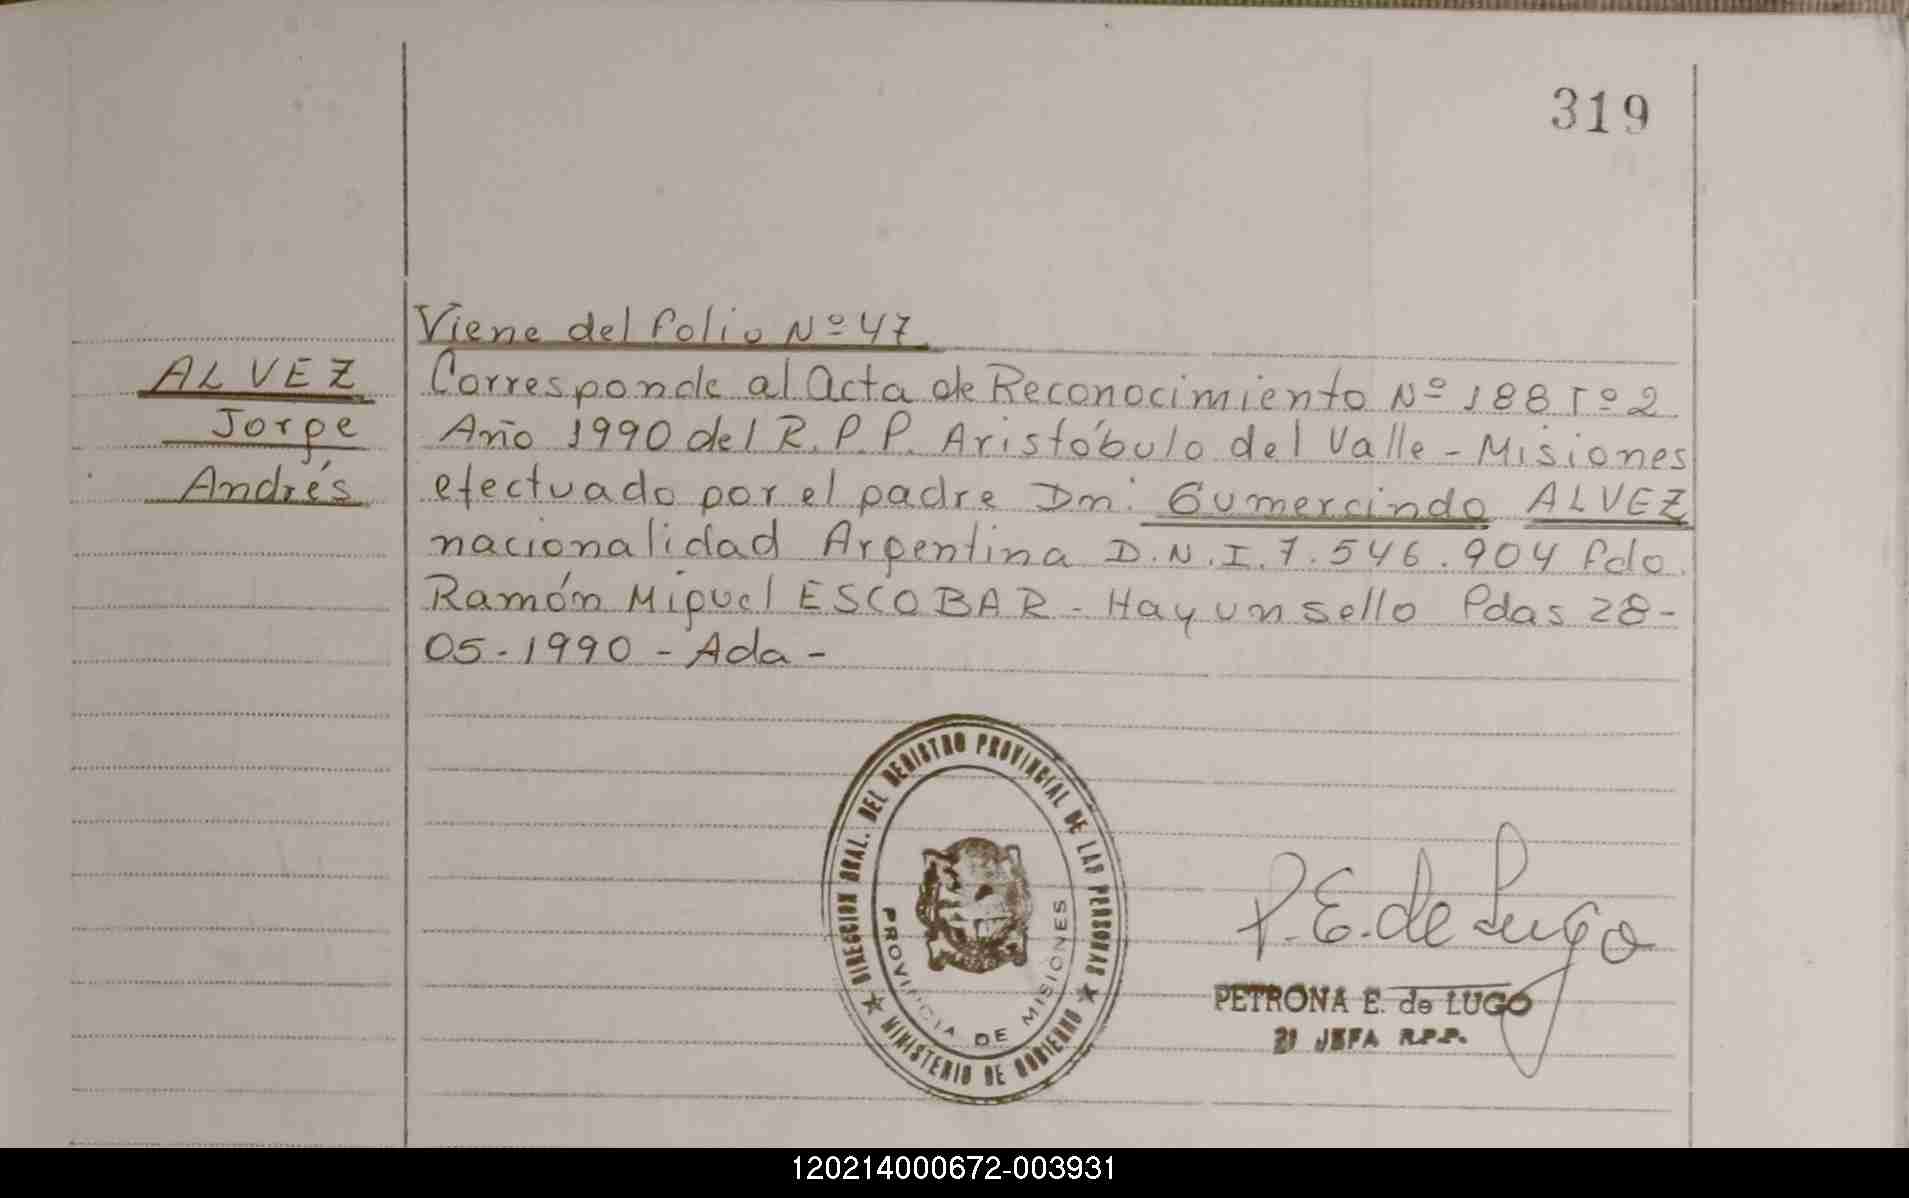 319
Viene del folio Nº 47
ALVEZ
Jorge
Andrés
Corresponde al Acta de Reconocimiento Nº 188 Tº 2
Año 1990 del R.P.P. Aristóbulo del Valle - Misiones
efectuado por el padre Dn. Gumercindo ALVEZ
nacionalidad Argentina D.N.I. 7.546.904 fdo.
Ramón Miguel ESCOBAR - Hay un sello Pdas 28-
05-1990 - Ada -
DIRECCION GRAL. DEL REGISTRO PROVINCIAL DE LAS PERSONAS
★ MINISTERIO DE GOBIERNO ★
PROVINCIA DE MISIONES
P.E. de Lugo
PETRONA E. de LUGO
JEFA R.P.P.
120214000672-003931